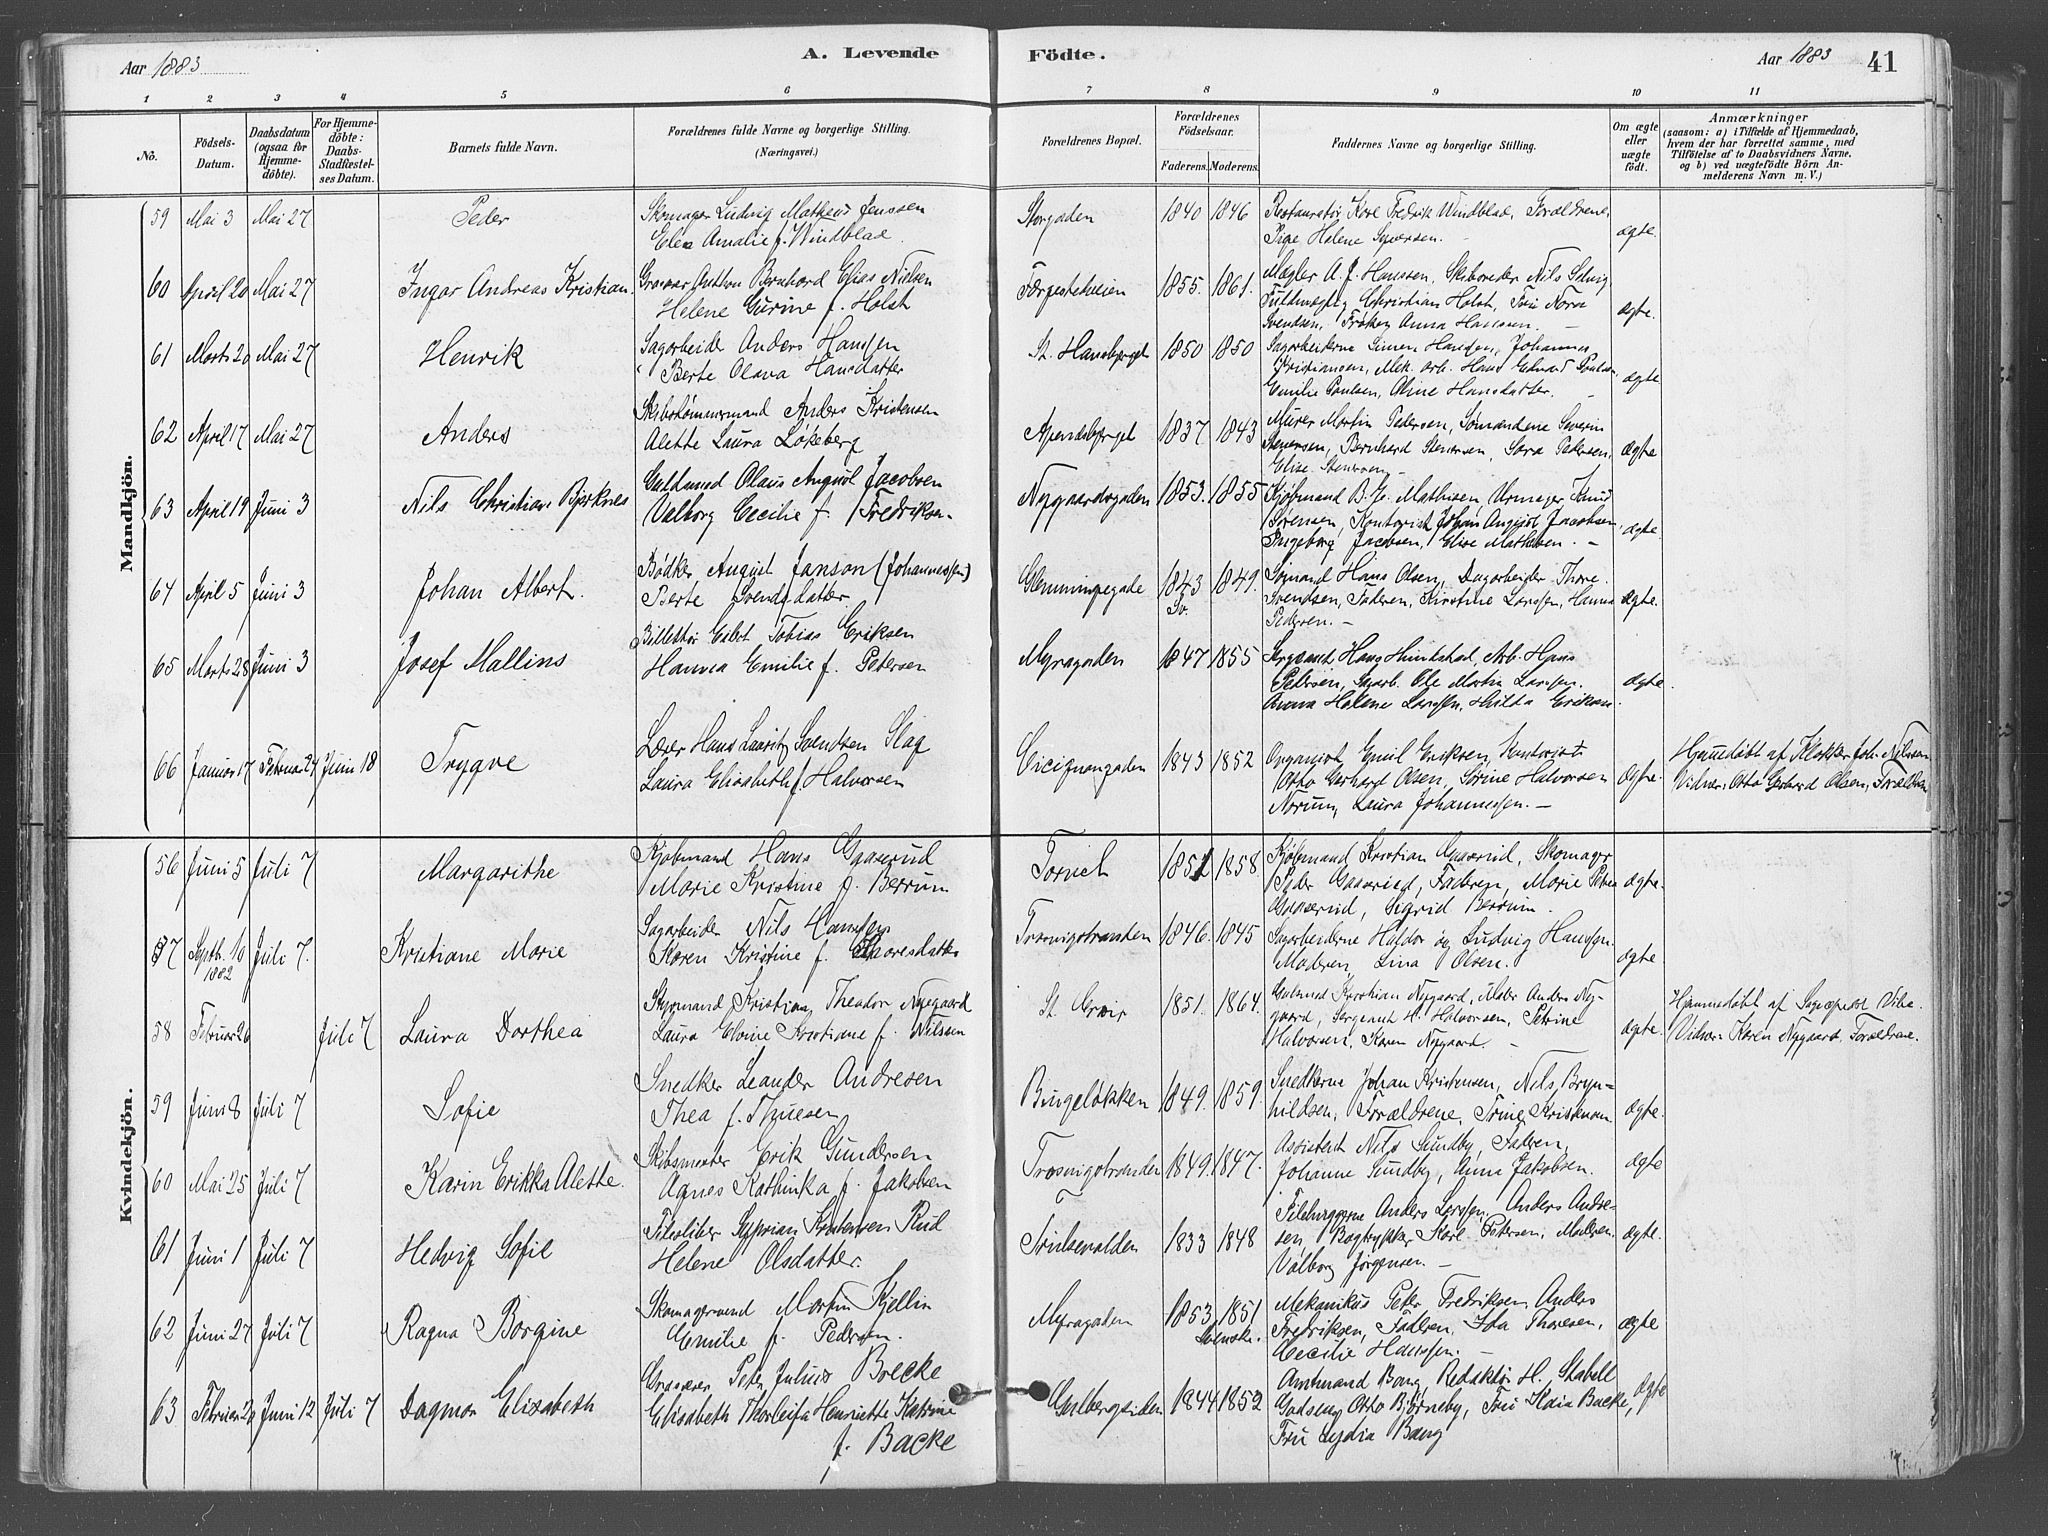 Aar 1883
A. Levende
Födte.
Aar 1883
41
1 2 3 4 5 6 7 8 9 10 11
No.
Födsels-Datum.
Daabsdatum (ogsaa for Hjemme-döbte).
For Hjemme-döbte: Daabs-Stadfæstel-ses Datum.
Barnets fulde Navn.
Forældrenes fulde Navne og borgerlige Stilling.
(Næringsvei.)
Forældrenes Bopæl.
Forældrenes Födselsaar.
Faderens. Moderens.
Faddernes Navne og borgerlige Stilling.
Om ægte eller uægte födt.
Anmærkninger
(saasom: a) i Tilfælde af Hjemmedaab,
hvem der har forrettet samme, med
Tilföielse af to Daabsvidners Navne,
og b) ved uægtefödte Börn An-
melderens Navn m. V.)
Mandkjön.
59 Mai 3 Mai 27 Peder
Skomager Ludvig Matheus Jenssen
Amalie f. Windblad
Storgaden 1840 1846
Fredrik Windblad, Forældrene,
Pige Helene Syversen.
ægte.
60 April 20 Mai 27 Ingar Andreas Kristian
Anthon Bernhard Elias Nielsen
Helene Gurine f. Holst
1855. 1861.
Mægler A. J. Hanssen, Nils
Christian Holst, Fru Nora
Svendsen, Frøken Anna Hanssen.
ægte.
61 Marts 20 Mai 27 Henrik
Sagarbeider Anders Hanssen
Berte Olava Hansdatter
St. Hansberget 1850 1850
Sagarbeiderne Simen Hansen, Johannes
Kristiansen, Mek. arb. Hans Edvard Poulsen,
Emilie Poulsen, Oline Hansdatter.
ægte
62 April 17 Mai 27 Anders
Skibstømmermand Anders Kristensen
Alette Laura Løkeberg
Apenesberget 1837 1843
Murer Martin Pedersen, Sømændene Severin
Stenersen, Bernhard Stenersen, Sara Pedersen,
Elise Stenersen
ægte
63 April 19 Juni 3 Nils Christian Bjerknes
Guldsmed Olaus August Jacobsen
Valborg Cecilie f. Fredriksen
Nygaardsgaden 1853. 1855
Kjøbmand B. H. Mathisen, Urmager Knud
Sørensen, Kontorist Johan August Jacobsen,
Ingeborg Jacobsen, Elise Mathisen.
ægte.
64 April 5 Juni 3 Johan Albert.
Bødker August Janson (Johannessen)
Berte Svendsdatter.
Glemmingegade 1843 Sv. 1849.
Sømand Hans Olsen, Dagarbeider Thore
Svendsen, Faderen, Kirstine Larssen, Hanna
Pedersen.
ægte.
65 Marts 28 Juni 3 Josef Mallins
Tobias Eriksen
Hanna Emilie f. Petersen
Myragaden 1847 1855
Sergeant Hans Arb. Hans
Pedersen, Sagarb. Ole Martin Larssen.
Anna Helene Larssen, Hilda Eriksen
ægte.
66 Januar 17 Februar 24 Juni 18 Trygve
Lærer Hans Lauritz Svendsen Slag
Laura Elisabeth f. Halvorsen
Cicignongaden 1843 1852
Organist Emil Eriksen, Kontorist
Otto Gerhard Olsen, Sørine Halvorsen
Norum, Laura Johannessen.
ægte.
Hjemmedøbt af Klokker Joh. Nilssen
Vidner: Otto Gerhard Olsen, Forældrene
Kvindekjön.
56 Juni 5 Juli 7 Margarithe
Kjøbmand Hans Gaaserud
Marie Kristine f. Berrum
Torvet 1851 1858.
Kjøbmand Kristian Gaaserud, Skomager
Peder Gaaserud, Faderen, Marie Petrea
Gaaserud, Sigrid Berrum.
ægte.
57 Septb. 10 1882 Juli 7. Kristiane Marie
Sagarbeider Nils Hanssen
Karen Kristine f.
Trosvigstranden 1846. 1845
Sagarbeiderne Haldor og Ludvig Hanssen.
Moderen, Lina Olsen.
ægte.
58 Februar 26 Juli 7 Laura Dorthea
Styrmand Kristian Theodor Nygaard
Laura Elvine Kristiane f. Nilssen
St. Croix 1851. 1864.
Kristian Nygaard, Maler Anders Ny-
gaard, Sergeant H. Halvorsen, Petrine
Halvorsen, Karen Nygaard.
ægte.
Hjemmedøbt af
Vidner: Karen Nygaard, Forældrene.
59 Juni 8 Juli 7 Sofie
Snedker Leander Andresen
Thea f. Thuesen
Bingeløkken 1849. 1859.
Snedkerne Johan Kristensen, Nils Bryn-
hildsen, Forældrene, Trine Kristensen
ægte.
60 Mai 25 Juli 7 Karin Erikka Alette.
Skibsmester Erik Gundersen
Agnes Kathinka f. Jakobsen
Trosvigstranden 1849. 1847.
Assistent Nils Sundby, Faderen,
Johanne Sundby, Anna Jakobsen.
ægte
61 Juni 1 Juli 7 Hedvig Sofie
Syprian Kristensen Rud
Helene Olsdatter.
1833 1848
Anders Larssen, Anders Andre-
sen, Bogtrykker Karl Petersen, Moderen,
Valborg Jørgensen.
ægte.
62 Juni 27 Juli 7 Ragna Borgine
Skomagersvend Martin Kjellin
Emilie f. Pedersen.
Myragaden 1853 1851 Svenske.
Mekanikus Peter Fredriksen, Anders
Fredriksen, Faderen, Ida Thoresen,
Cecilie Hanssen.
ægte
63 Februar Juni 12 Juli 7 Dagmar Elisabeth
Peter Julius Boecke
Elisabeth Thorleifa Henriette Katrine
f. Backe
Gulbergsiden 1844 1852
Amtmand Bang, Redaktør H. Stabell
Otto Bjørneby, Fru Kaia Backe,
Fru Lydia Bang
ægte